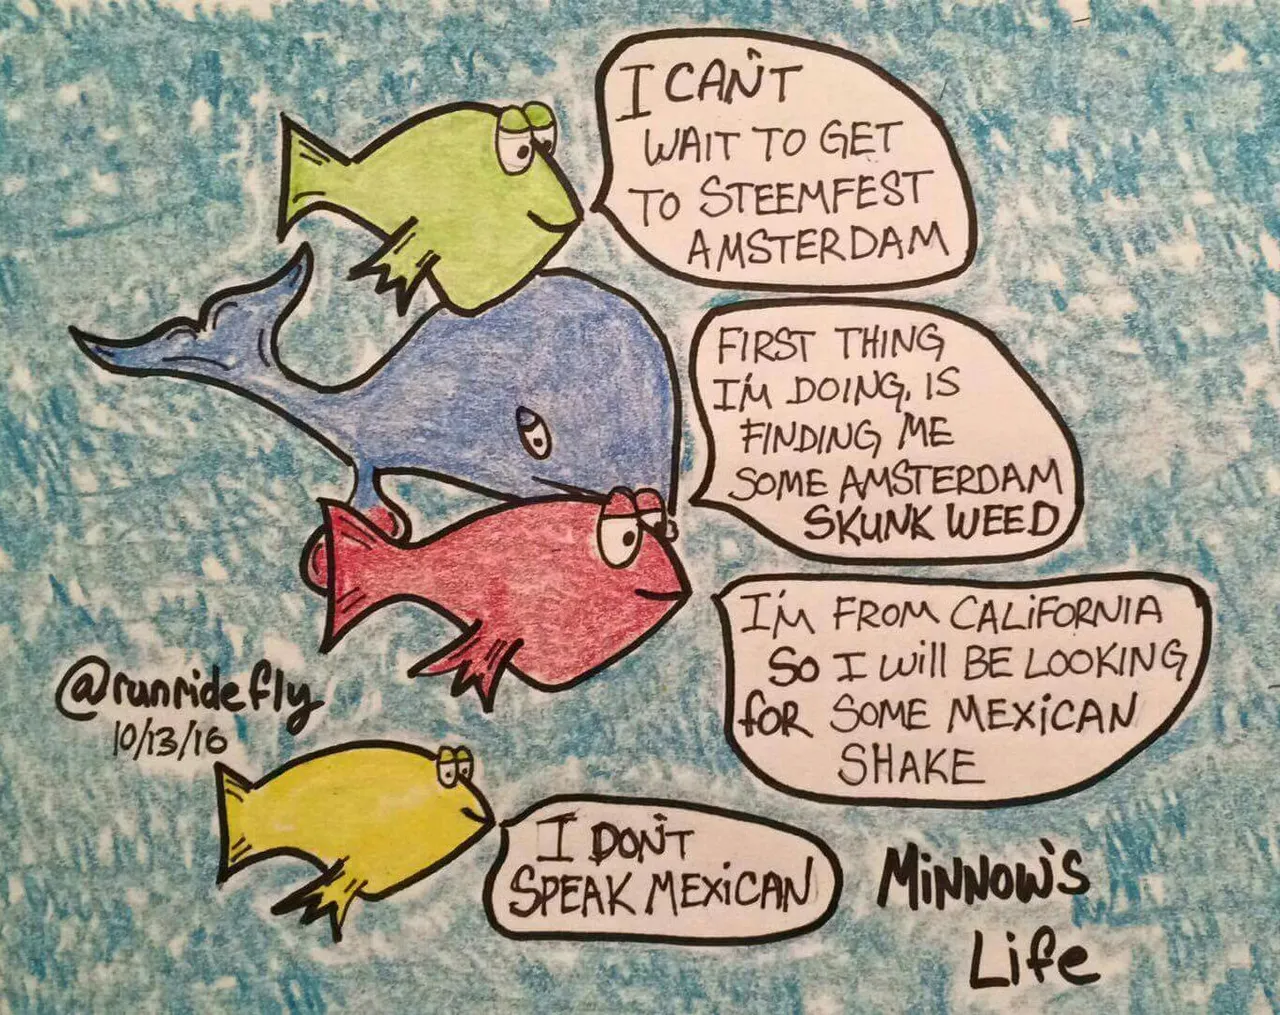 I CAN'T
WAIT TO GET
TO STEEMFEST
AMSTERDAM
FIRST THING
I'M DOING, IS
FINDING ME
SOME AMSTERDAM
SKUNK WEED
I'M FROM CALIFORNIA
SO I WILL BE LOOKING
FOR SOME MEXICAN
SHAKE
@runridefly
10/13/16
I DON'T
SPEAK MEXICAN
MINNOW'S
Life